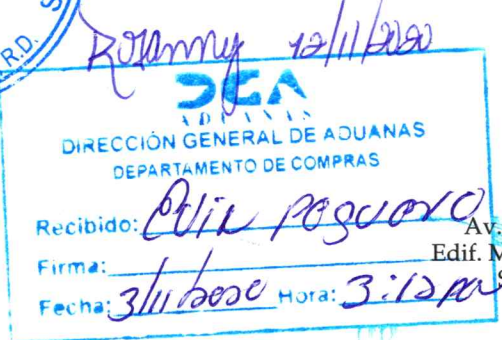 R.D.
Rosanny 12/11/2020
DGA
ADUANAS
DIRECCIÓN GENERAL DE ADUANAS
DEPARTAMENTO DE COMPRAS
Recibido: Evin
Av.
Firma:
Edif. M
Fecha: 3/11/2020 Hora: 3:12 PM
S